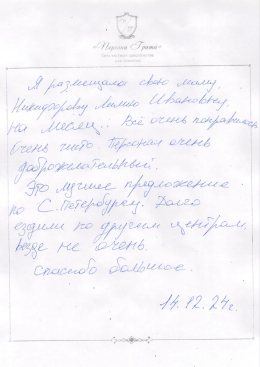 «Персона Грата»
Я размещала свою маму,
Никифорову Ивановну,
на месяц. Всё очень понравилось
Очень чисто. Персонал очень
доброжелательный.
Это лучшее предложение
по С. Петербургу. Долго
ездили по другим центрам.
Везде не очень.
Спасибо большое.
14.12.24г.